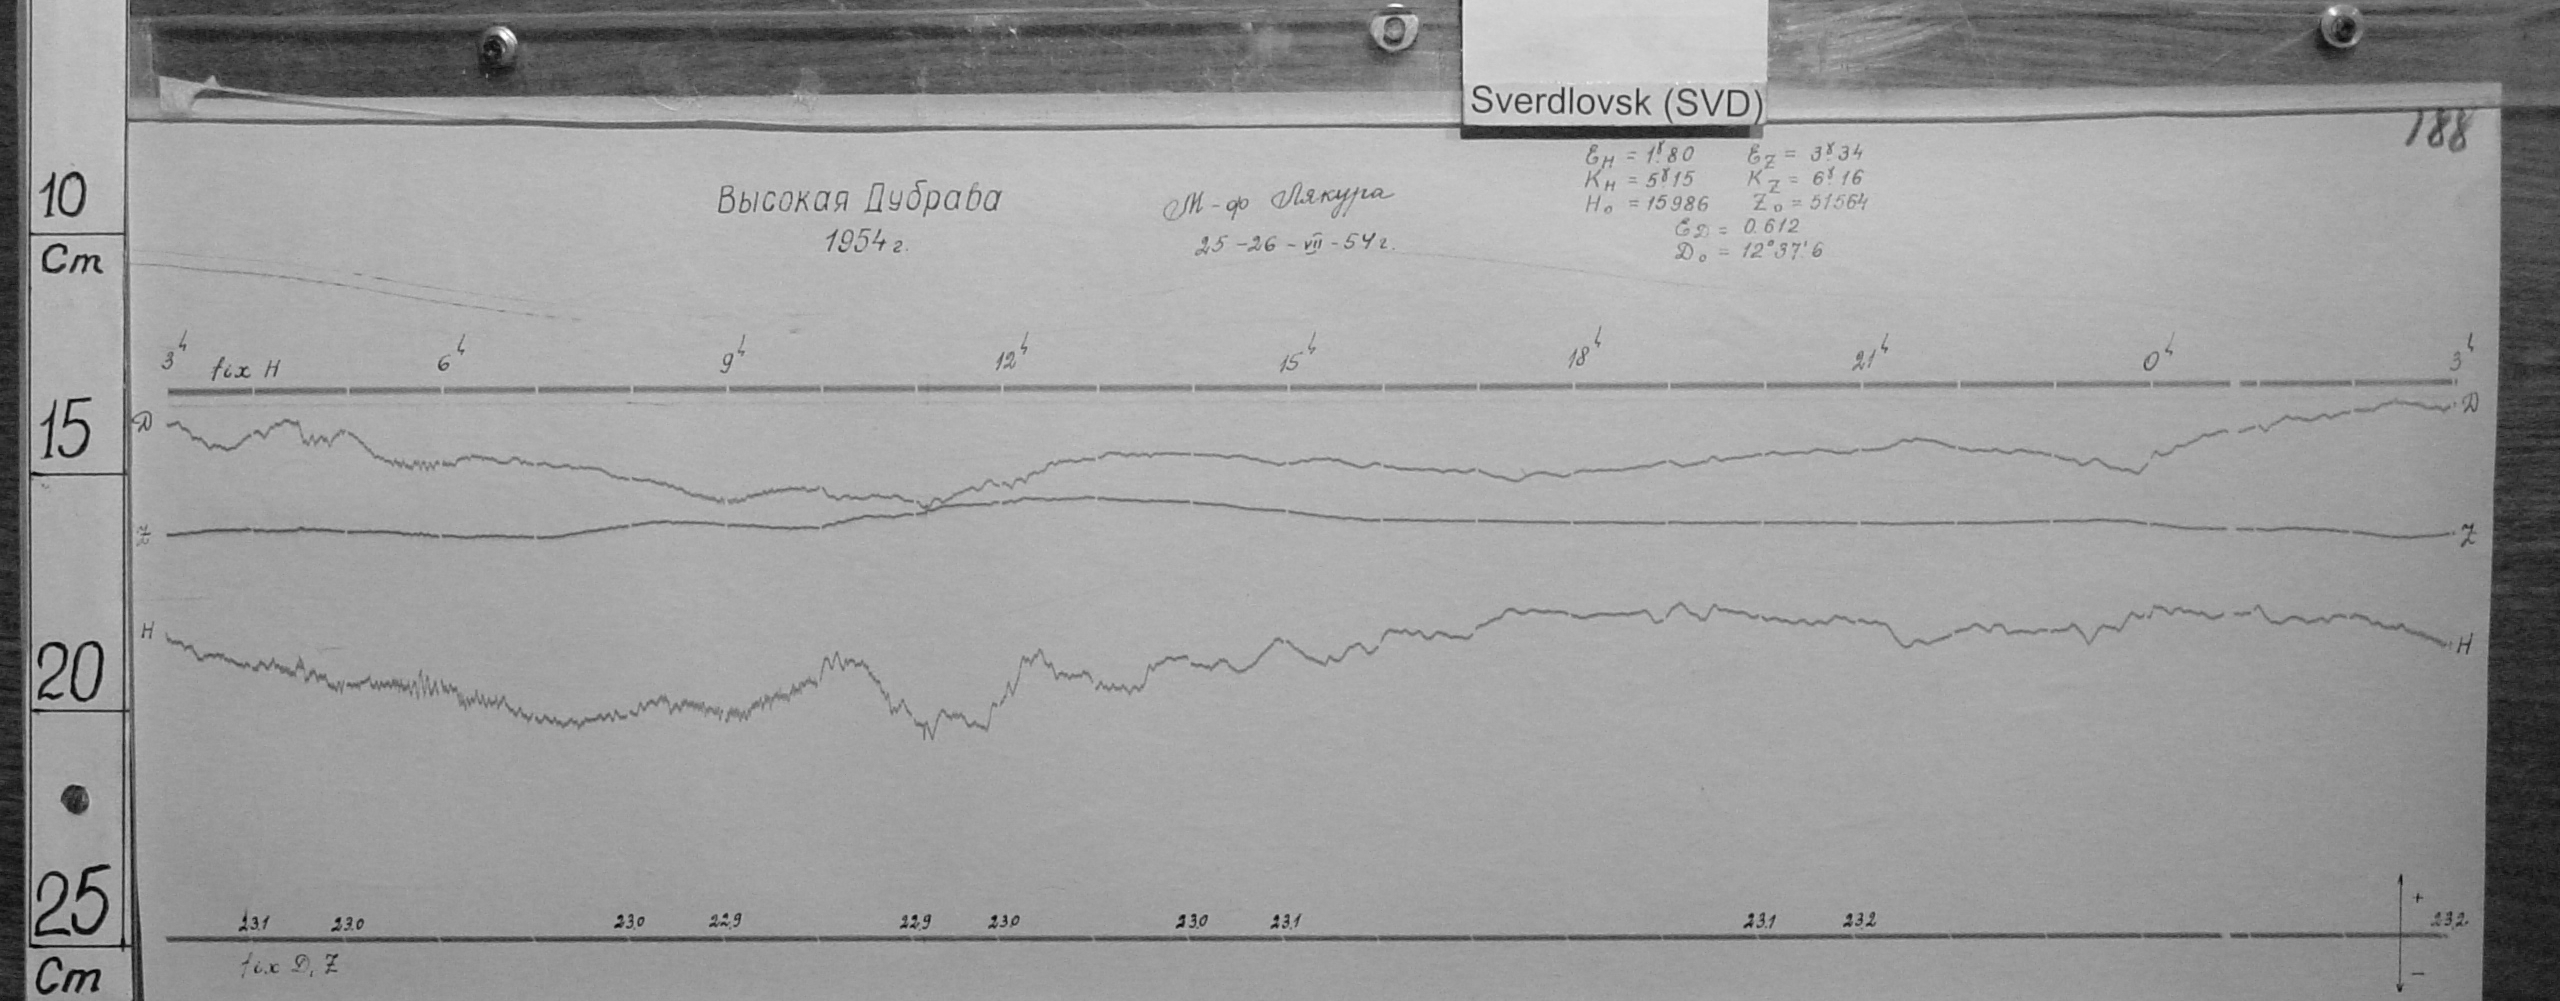 Sverdlovsk (SVD)
188
10
Cm
15
20
25
Cm
Высокая Дубрава
1954 г.
М-ф Лякура
25-26-VII-54 г.
ε_H = 1ᵞ.80 ε_Z = 3ᵞ.34
K_H = 5ᵞ.15 K_Z = 6ᵞ.16
H₀ = 15986 Z₀ = 51564
ε_D = 0.612
D₀ = 12°37'.6
3ʰ 6ʰ 9ʰ 12ʰ 15ʰ 18ʰ 21ʰ 0ʰ 3ʰ
fix H
D D
Z Z
H H
23.1 23.0 23.0 22.9 22.9 23.0 23.0 23.1 23.1 23.2 23.2
fix D, Z
+
−